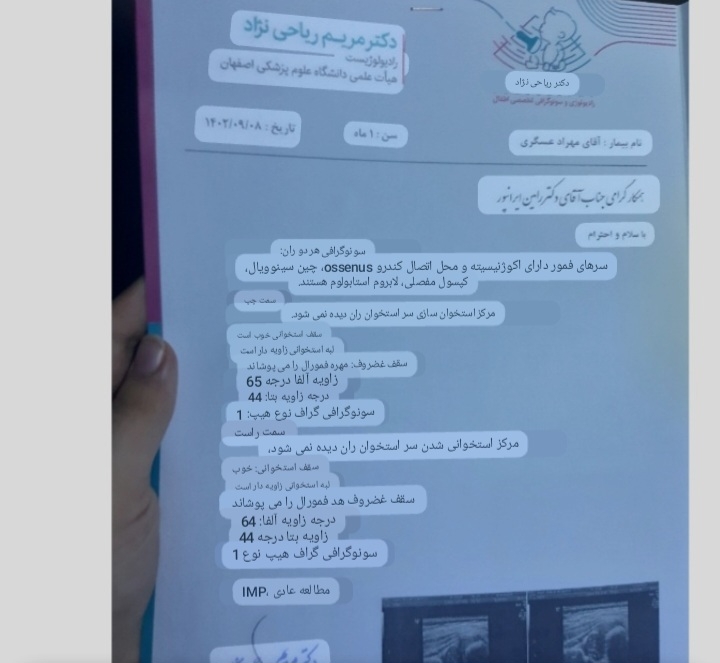 دکتر مریم ریاحی نژاد
رادیولوژیست
هیأت علمی دانشگاه علوم پزشکی اصفهان
دکتر ریاحی نژاد
رادیولوژی و سونوگرافی تخصصی اطفال
نام بیمار : آقای مهراد عسگری
سن : ۱ ماه
تاریخ : ۱۴۰۲/۰۹/۰۸
همکار گرامی جناب آقای دکتر رامین ایرانپور
با سلام و احترام
سونوگرافی هر دو ران:
سرهای فمور دارای اکوژنیسیته و محل اتصال کندرو ossenus، چین سینوویال،
کپسول مفصلی، لابروم استابولوم هستند.
سمت چپ
مرکز استخوان سازی سر استخوان ران دیده نمی شود.
سقف استخوانی خوب است
لبه استخوانی زاویه دار است
سقف غضروف: مهره فمورال را می پوشاند
زاویه آلفا درجه 65
درجه زاویه بتا: 44
سونوگرافی گراف نوع هیپ: 1
سمت راست
مرکز استخوانی شدن سر استخوان ران دیده نمی شود،
سقف استخوانی: خوب
لبه استخوانی زاویه دار است
سقف غضروف هد فمورال را می پوشاند
درجه زاویه آلفا: 64
زاویه بتا درجه 44
سونوگرافی گراف هیپ نوع 1
مطالعه عادی .IMP